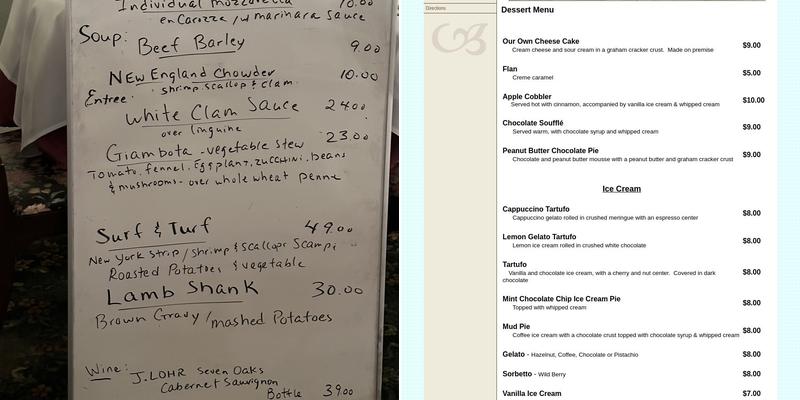 Individual Mozzarella 10.00
en Carozza /w marinara sauce
Soup:
Beef Barley 9.00
New England Chowder 10.00
shrimp, scallop & clam
Entree:
White Clam Sauce 24.00
over linguine
Giambota - vegetable stew 23.00
Tomato, fennel, Eggplant, zucchini, beans
& mushrooms - over whole wheat penne
Surf & Turf 49.00
New York Strip / Shrimp & Scallops Scampi
Roasted Potatoes & vegetable
Lamb Shank 30.00
Brown Gravy / mashed Potatoes
Wine: J. LOHR Seven Oaks
Cabernet Sauvignon
Bottle 39.00
Directions
Dessert Menu
Our Own Cheese Cake $9.00
Cream cheese and sour cream in a graham cracker crust. Made on premise
Flan $5.00
Creme caramel
Apple Cobbler $10.00
Served hot with cinnamon, accompanied by vanilla ice cream & whipped cream
Chocolate Soufflé $9.00
Served warm, with chocolate syrup and whipped cream
Peanut Butter Chocolate Pie $9.00
Chocolate and peanut butter mousse with a peanut butter and graham cracker crust
Ice Cream
Cappuccino Tartufo $8.00
Cappuccino gelato rolled in crushed meringue with an espresso center
Lemon Gelato Tartufo $8.00
Lemon ice cream rolled in crushed white chocolate
Tartufo $8.00
Vanilla and chocolate ice cream, with a cherry and nut center. Covered in dark
chocolate
Mint Chocolate Chip Ice Cream Pie $8.00
Topped with whipped cream
Mud Pie $8.00
Coffee ice cream with a chocolate crust topped with chocolate syrup & whipped cream
Gelato - Hazelnut, Coffee, Chocolate or Pistachio $8.00
Sorbetto - Wild Berry $8.00
Vanilla Ice Cream $7.00